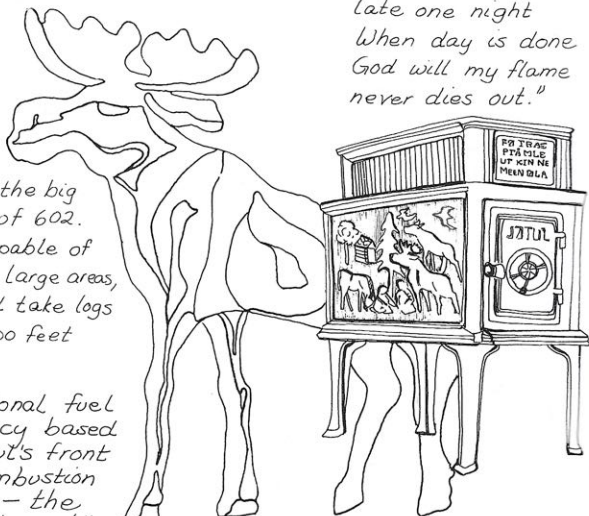 late one night
When day is done
God will my flame
never dies out."
the big
of 602.
pable of
large areas,
take logs
oo feet
onal fuel
cy based
ul's front
mbustion
— the
JØTUL